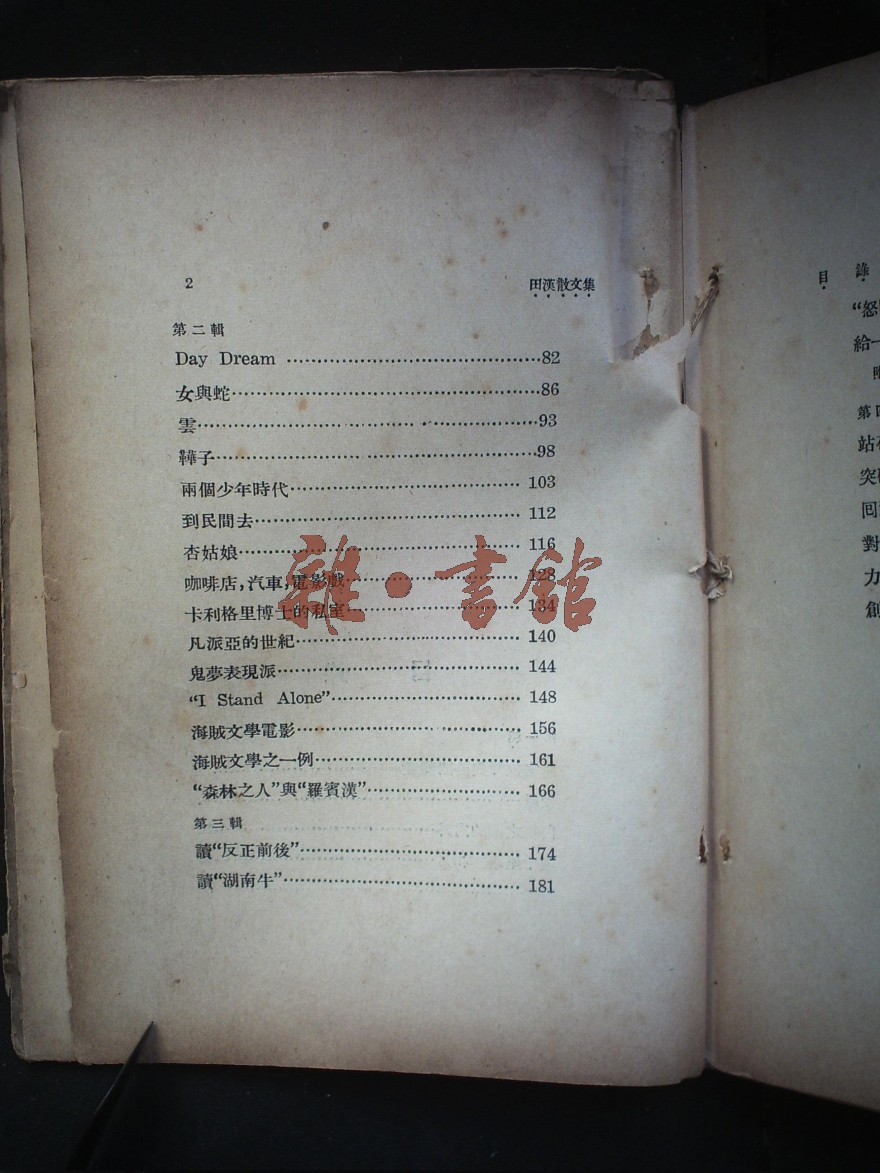 2 田漢散文集
第二輯
Day Dream ………………………………………82
女與蛇………………………………………86
雲………………………………………93
鞾子………………………………………98
兩個少年時代………………………………………103
到民間去………………………………………112
杏姑娘………………………………………116
咖啡店,汽車,電影戲………………………………………128
卡利格里博士的私室………………………………………134
凡派亞的世紀………………………………………140
鬼夢表現派………………………………………144
“I Stand Alone”………………………………………148
海賊文學電影………………………………………156
海賊文學之一例………………………………………161
“森林之人”與“羅賓漢”………………………………………166
第三輯
讀“反正前後”………………………………………174
讀“湖南牛”………………………………………181
雜·書館
目錄
“怒
給一
第四
站在
突破
回
對
力
創